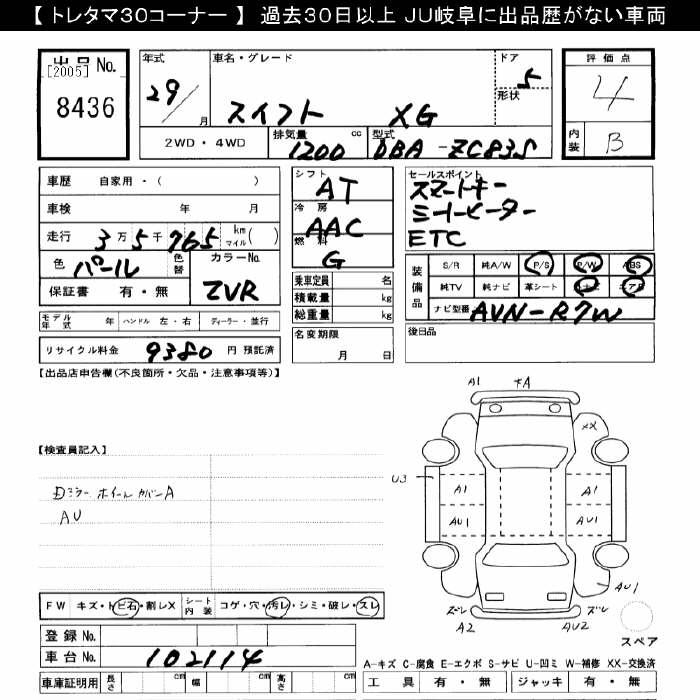 【 トレタマ30コーナー 】 過去30日以上 JU岐阜に出品歴がない車両
出品 No.
[2005]
8436
年式 29 月
車名・グレード スイフト XG
ドア 5
形状
評価点 4
内装 B
2WD・4WD
排気量 1200 cc
型式 DBA-ZC83S
車歴 自家用・( )
車検 年 月
走行 3万5千765 km マイル( )
色 パール
色替
カラーNo. ZVR
保証書 有・無
シフト AT
冷房 AAC
燃料 G
セールスポイント
スマートキー
シートヒーター
ETC
乗車定員 名
積載量 kg
総重量 kg
装備品
S/R 純A/W P/S P/W ABS
純TV 純ナビ 革シート
ナビ型番 AVN-R7W
モデル年式 年 ハンドル 左・右 ディーラー・並行
名変期限 月 日
後日品
リサイクル料金 9380 円 預託済
【出品店申告欄(不良箇所・欠品・注意事項等)】
【検査員記入】
Dミラー ホイールカバーA
AU
A1
XX
U3
A1
A1
AU1
AU1
AU1
ズレ
ズレ
A2
AU2
スペア
FW キズ・トビ石・割レX
シート内装 コゲ・穴・汚レ・シミ・破レ・スレ
登録 No.
車台 No. 102114
車庫証明用 長さ cm 幅 cm 高さ cm
A-キズ C-腐食 E-エクボ S-サビ U-凹ミ W-補修 XX-交換済
工具 有・無 ジャッキ 有・無